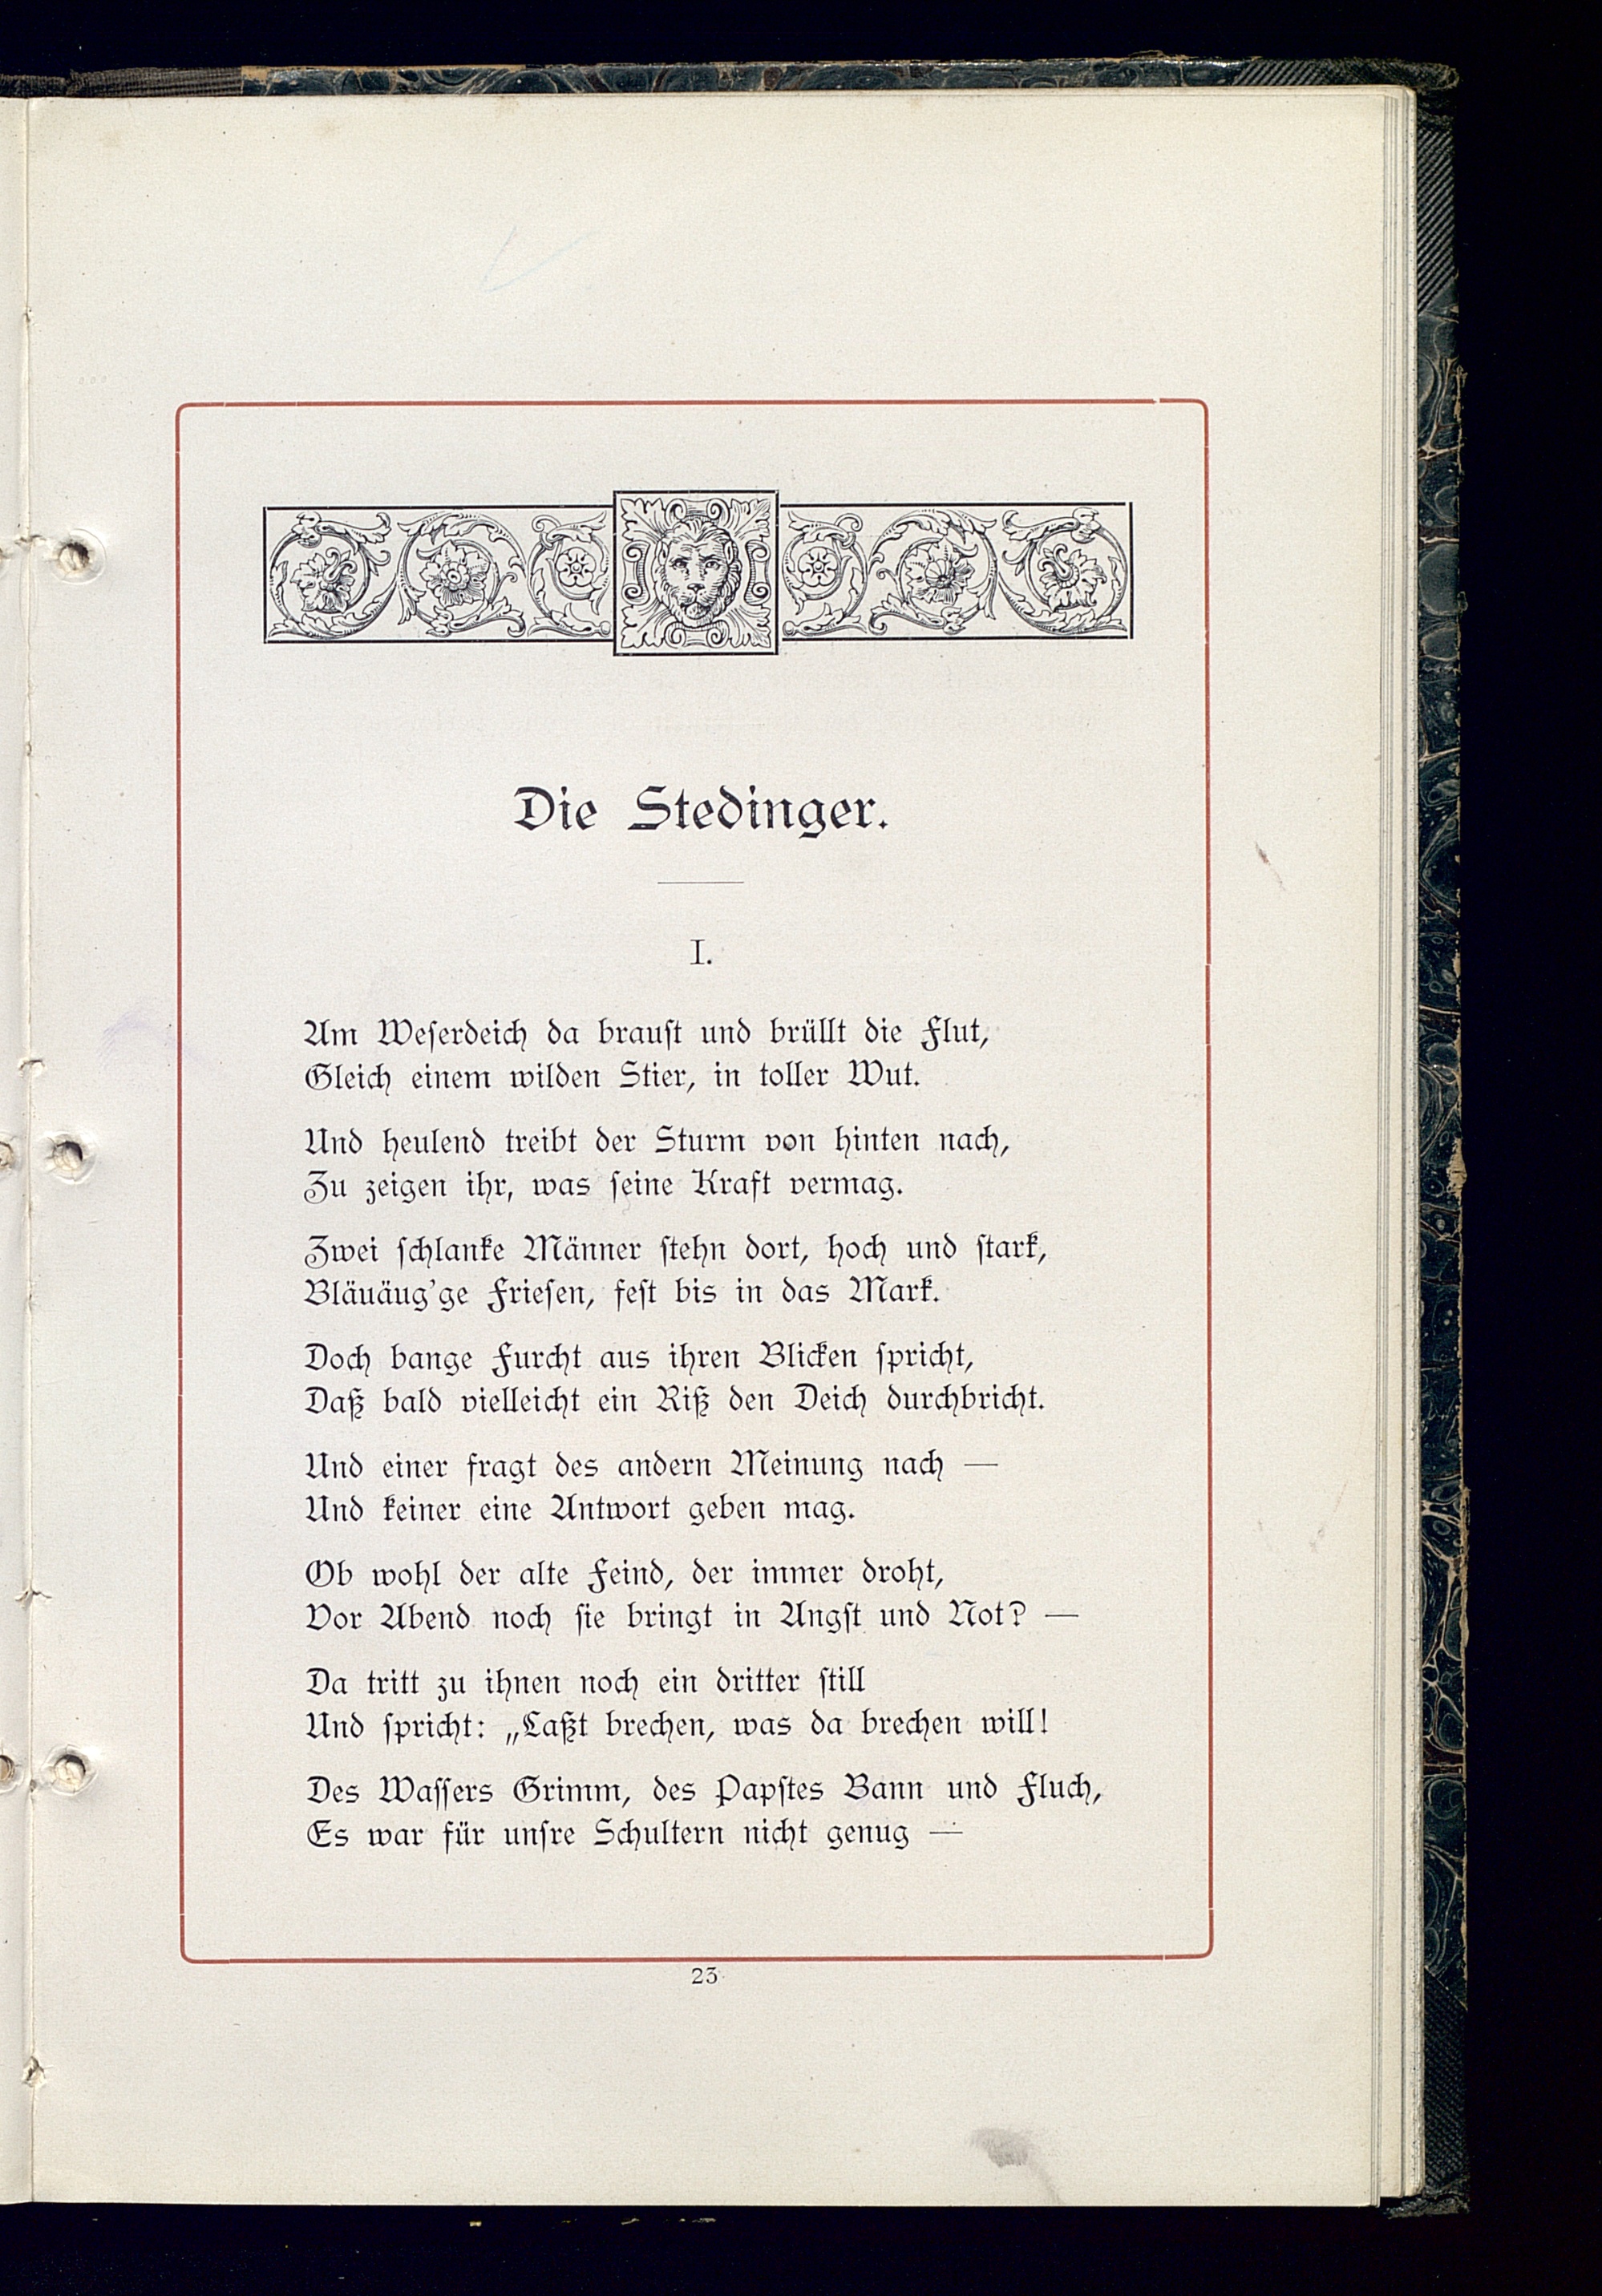 Die Stedinger.
I.
Am Weſerdeich da brauſt und brüllt die Flut,
Gleich einem wilden Stier, in toller Wut.
Und heulend treibt der Sturm von hinten nach,
Zu zeigen ihr, was ſeine Kraft vermag.
Zwei ſchlanke Männer ſtehn dort, hoch und ſtark,
Bläuäug'ge Frieſen, feſt bis in das Mark.
Doch bange Furcht aus ihren Blicken ſpricht,
Daß bald vielleicht ein Riß den Deich durchbricht.
Und einer fragt des andern Meinung nach —
Und keiner eine Antwort geben mag.
Ob wohl der alte Feind, der immer droht,
Vor Abend noch ſie bringt in Angſt und Not? —
Da tritt zu ihnen noch ein dritter ſtill
Und ſpricht: „Laßt brechen, was da brechen will!
Des Waſſers Grimm, des Papſtes Bann und Fluch,
Es war für unſre Schultern nicht genug —
23